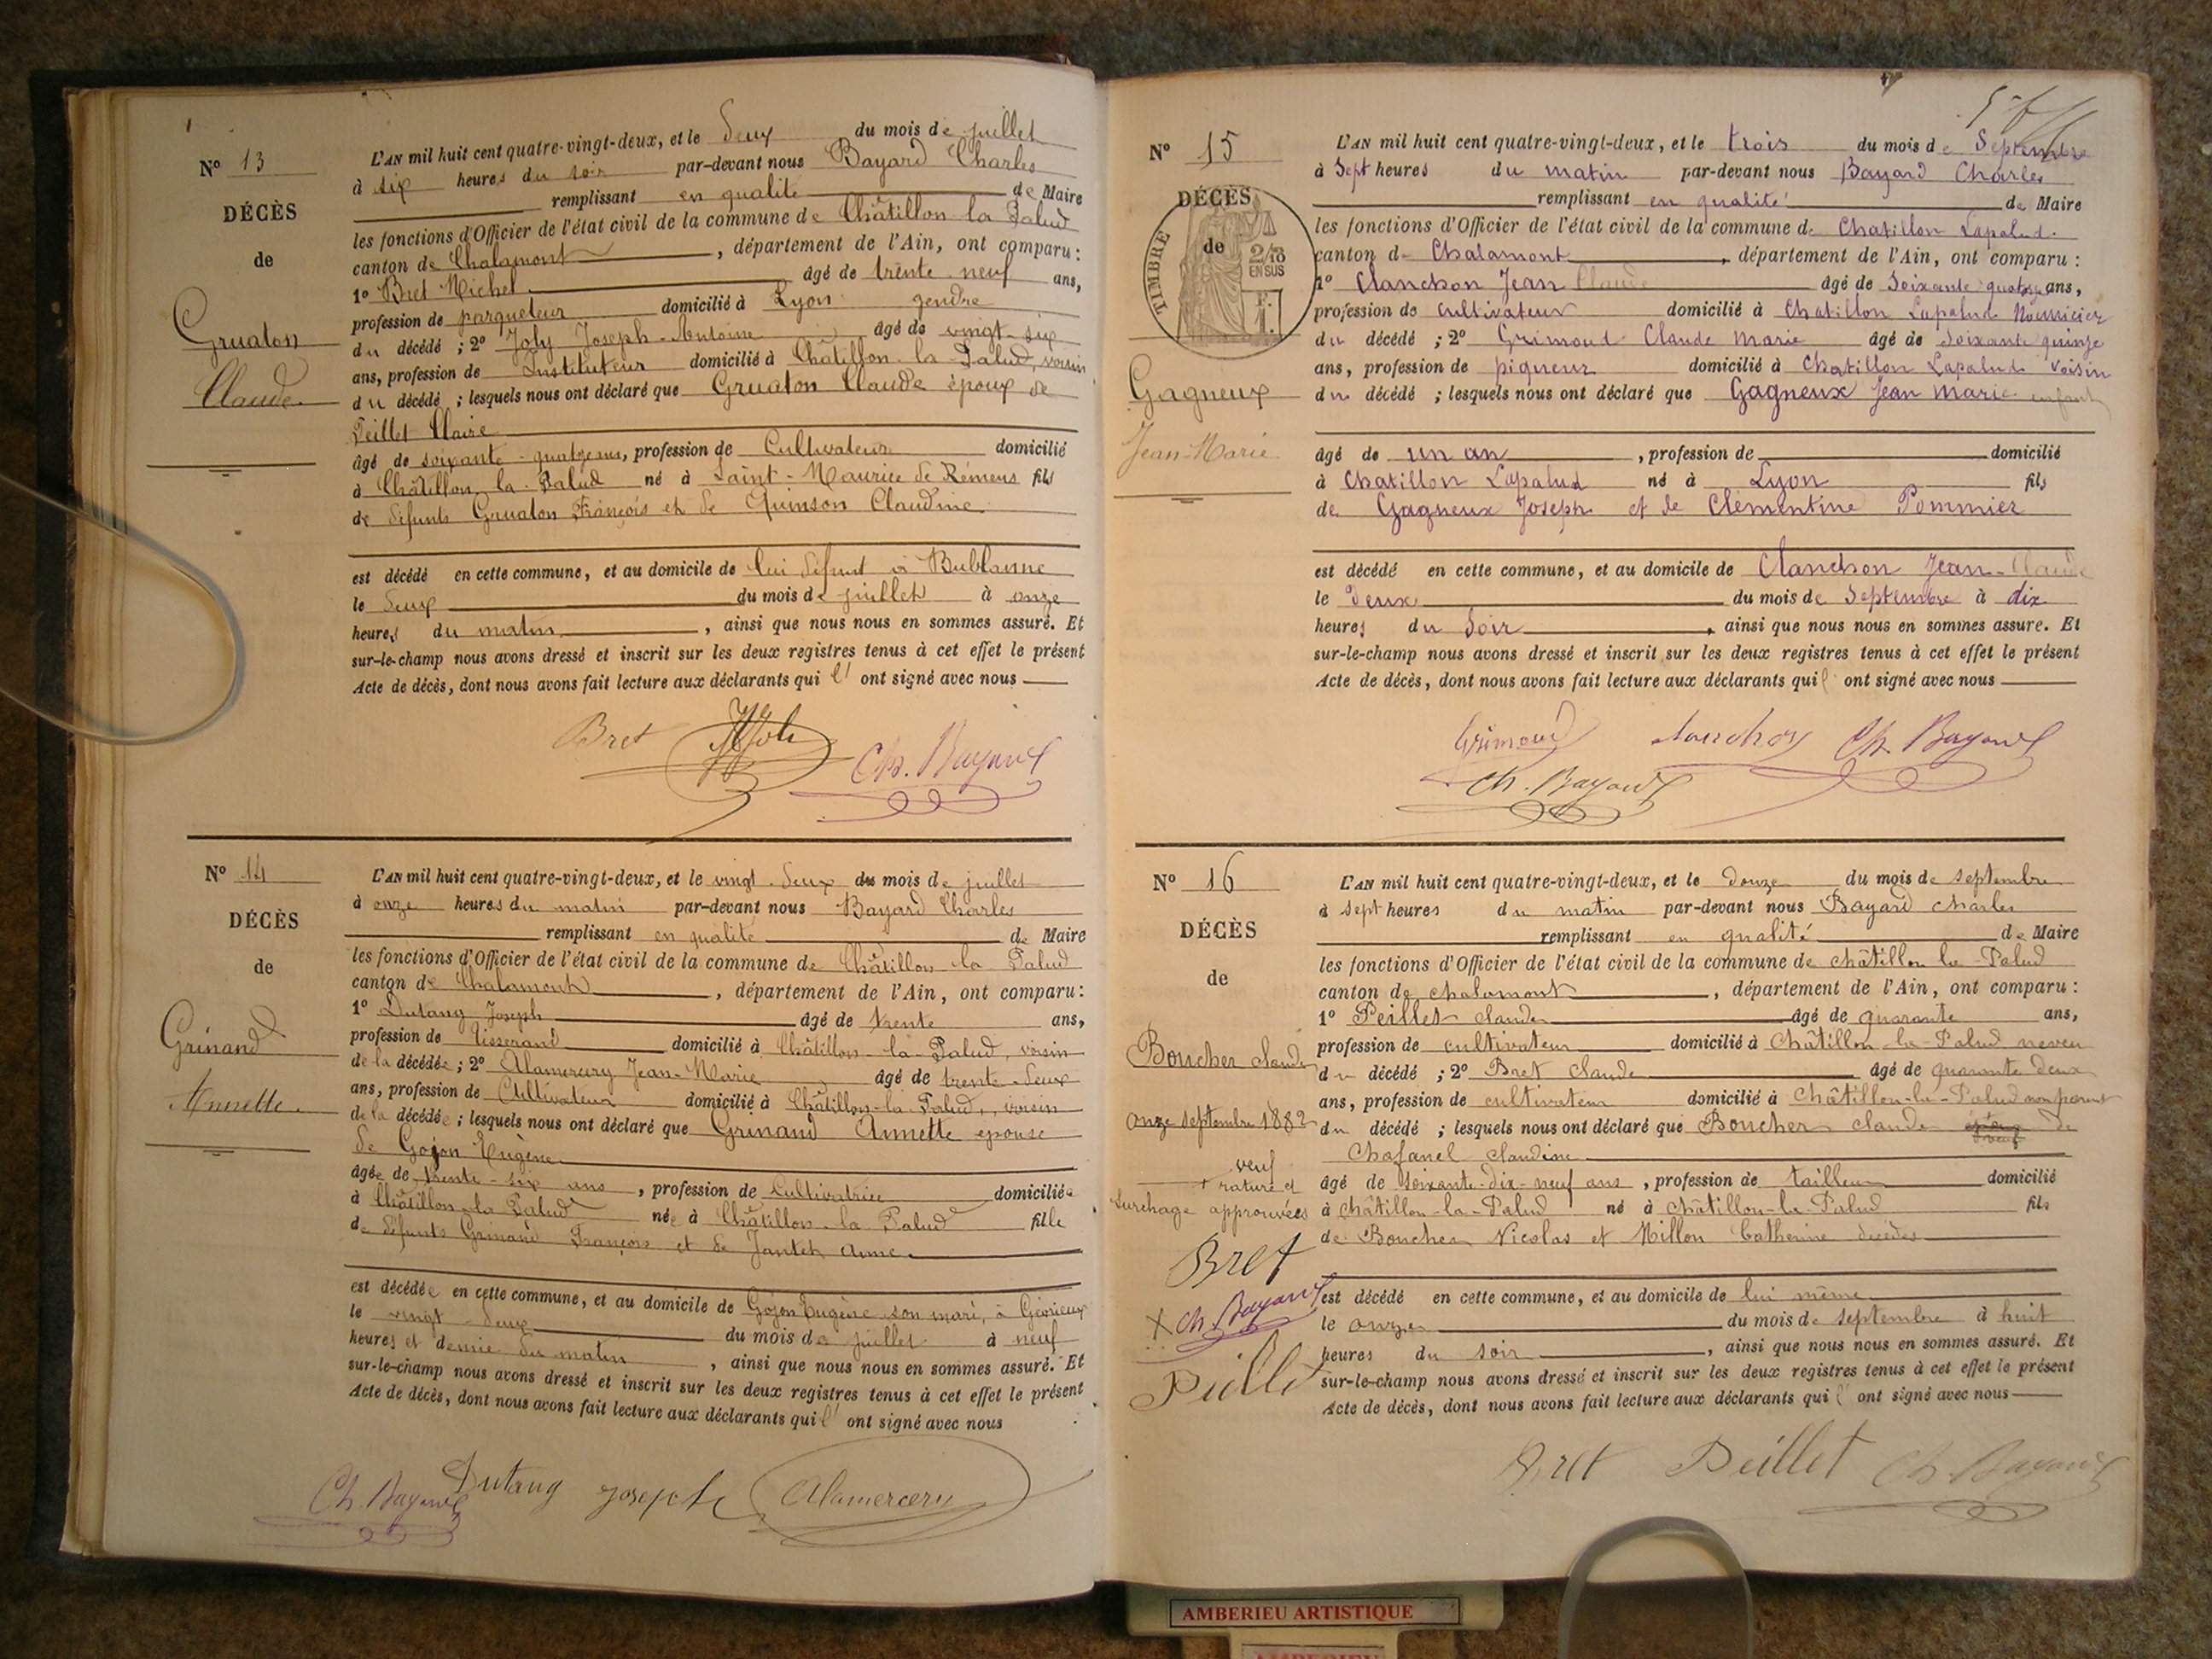 Nº 13
DÉCÈS
de
Gruaton
Claude
L'AN mil huit cent quatre-vingt-deux, et le deux du mois de juillet
à six heures du soir par-devant nous Bayard Charles
remplissant en qualité de Maire
les fonctions d'Officier de l'état civil de la commune de Châtillon la Palud
canton de Chalamont, département de l'Ain, ont comparu :
1º Bret Michel âgé de trente-neuf ans,
profession de parqueteur domicilié à Lyon gendre
du décédé ; 2º Joly Joseph-Antoine âgé de vingt-six
ans, profession de Instituteur domicilié à Châtillon-la-Palud, voisin
du décédé ; lesquels nous ont déclaré que Gruaton Claude époux de
Peillet Claire
âgé de soixante-quatre ans, profession de Cultivateur domicilié
à Châtillon-la-Palud né à Saint-Maurice de Rémens fils
de défunts Gruaton François et de Quinson Claudine
est décédé en cette commune, et au domicile de lui défunt à Bublanne
le deux du mois de juillet à onze
heures du matin, ainsi que nous nous en sommes assuré. Et
sur-le-champ nous avons dressé et inscrit sur les deux registres tenus à cet effet le présent
Acte de décès, dont nous avons fait lecture aux déclarants qui l' ont signé avec nous
Bret JAJoly Ch. Bayard
Nº 14
DÉCÈS
de
Grinand
Annette
L'AN mil huit cent quatre-vingt-deux, et le vingt-deux du mois de juillet
à onze heures du matin par-devant nous Bayard Charles
remplissant en qualité de Maire
les fonctions d'Officier de l'état civil de la commune de Châtillon-la-Palud
canton de Chalamont, département de l'Ain, ont comparu :
1º Dutang Joseph âgé de trente ans,
profession de Tisserand domicilié à Châtillon-la-Palud, voisin
de la décédée ; 2º Alamercery Jean-Marie âgé de trente-deux
ans, profession de Cultivateur domicilié à Châtillon-la-Palud, voisin
de la décédée ; lesquels nous ont déclaré que Grinand Annette épouse
de Gojon Eugène
âgée de trente-six ans, profession de Cultivatrice domiciliée
à Châtillon-la-Palud née à Châtillon-la-Palud fille
de défunts Grinand François et de Jantet Anne
est décédée en cette commune, et au domicile de Gojon Eugène son mari, à Gévrieux
le vingt-deux du mois de juillet à neuf
heures et demie du matin, ainsi que nous nous en sommes assuré. Et
sur-le-champ nous avons dressé et inscrit sur les deux registres tenus à cet effet le présent
Acte de décès, dont nous avons fait lecture aux déclarants qui l' ont signé avec nous
Ch. Bayard Dutang Joseph Alamercery
Nº 15
DÉCÈS
de
TIMBRE
2/10
EN SUS
F.
1.
Gagneux
Jean-Marie
L'AN mil huit cent quatre-vingt-deux, et le trois du mois de Septembre
à Sept heures du matin par-devant nous Bayard Charles
remplissant en qualité de Maire
les fonctions d'Officier de l'état civil de la commune de Chatillon Lapalud.
canton de Chalamont, département de l'Ain, ont comparu :
1º Clanchon Jean Claude âgé de Soixante quatorze ans,
profession de cultivateur domicilié à Chatillon Lapalud Nourricier
du décédé ; 2º Grimoud Claude Marie âgé de Soixante quinze
ans, profession de piqueur domicilié à Chatillon Lapalud voisin
du décédé ; lesquels nous ont déclaré que Gagneux Jean Marie enfant
âgé de un an, profession de domicilié
à Chatillon Lapalud né à Lyon fils
de Gagneux Joseph et de Clémentine Pommier
est décédé en cette commune, et au domicile de Clanchon Jean-Claude
le deux du mois de Septembre à dix
heures du Soir, ainsi que nous nous en sommes assuré. Et
sur-le-champ nous avons dressé et inscrit sur les deux registres tenus à cet effet le présent
Acte de décès, dont nous avons fait lecture aux déclarants qui l' ont signé avec nous
Grimoud Clanchon Ch. Bayard
Ch. Bayard
Nº 16
DÉCÈS
de
Boucher Claude
onze septembre 1882
veuf
rature et
surchage approuvées
Bret
Ch. Bayard
Peillet
L'AN mil huit cent quatre-vingt-deux, et le douze du mois de septembre
à sept heures du matin par-devant nous Bayard Charles
remplissant en qualité de Maire
les fonctions d'Officier de l'état civil de la commune de châtillon-la-Palud
canton de chalamont, département de l'Ain, ont comparu :
1º Peillet claude âgé de quarante ans,
profession de cultivateur domicilié à châtillon-la-Palud neveu
du décédé ; 2º Bret claude âgé de quarante deux
ans, profession de cultivateur domicilié à Châtillon-la-Palud non parent
du décédé ; lesquels nous ont déclaré que Boucher claude veuf de
Chafanel claudine
âgé de soixante-dix-neuf ans, profession de tailleur domicilié
à châtillon-la-Palud né à châtillon-la-Palud fils
de Boucher Nicolas et Millon Catherine décédés
est décédé en cette commune, et au domicile de lui même
le onze du mois de septembre à huit
heures du soir, ainsi que nous nous en sommes assuré. Et
sur-le-champ nous avons dressé et inscrit sur les deux registres tenus à cet effet le présent
Acte de décès, dont nous avons fait lecture aux déclarants qui l' ont signé avec nous
Bret Peillet Ch. Bayard
AMBERIEU ARTISTIQUE
AMBERIEU